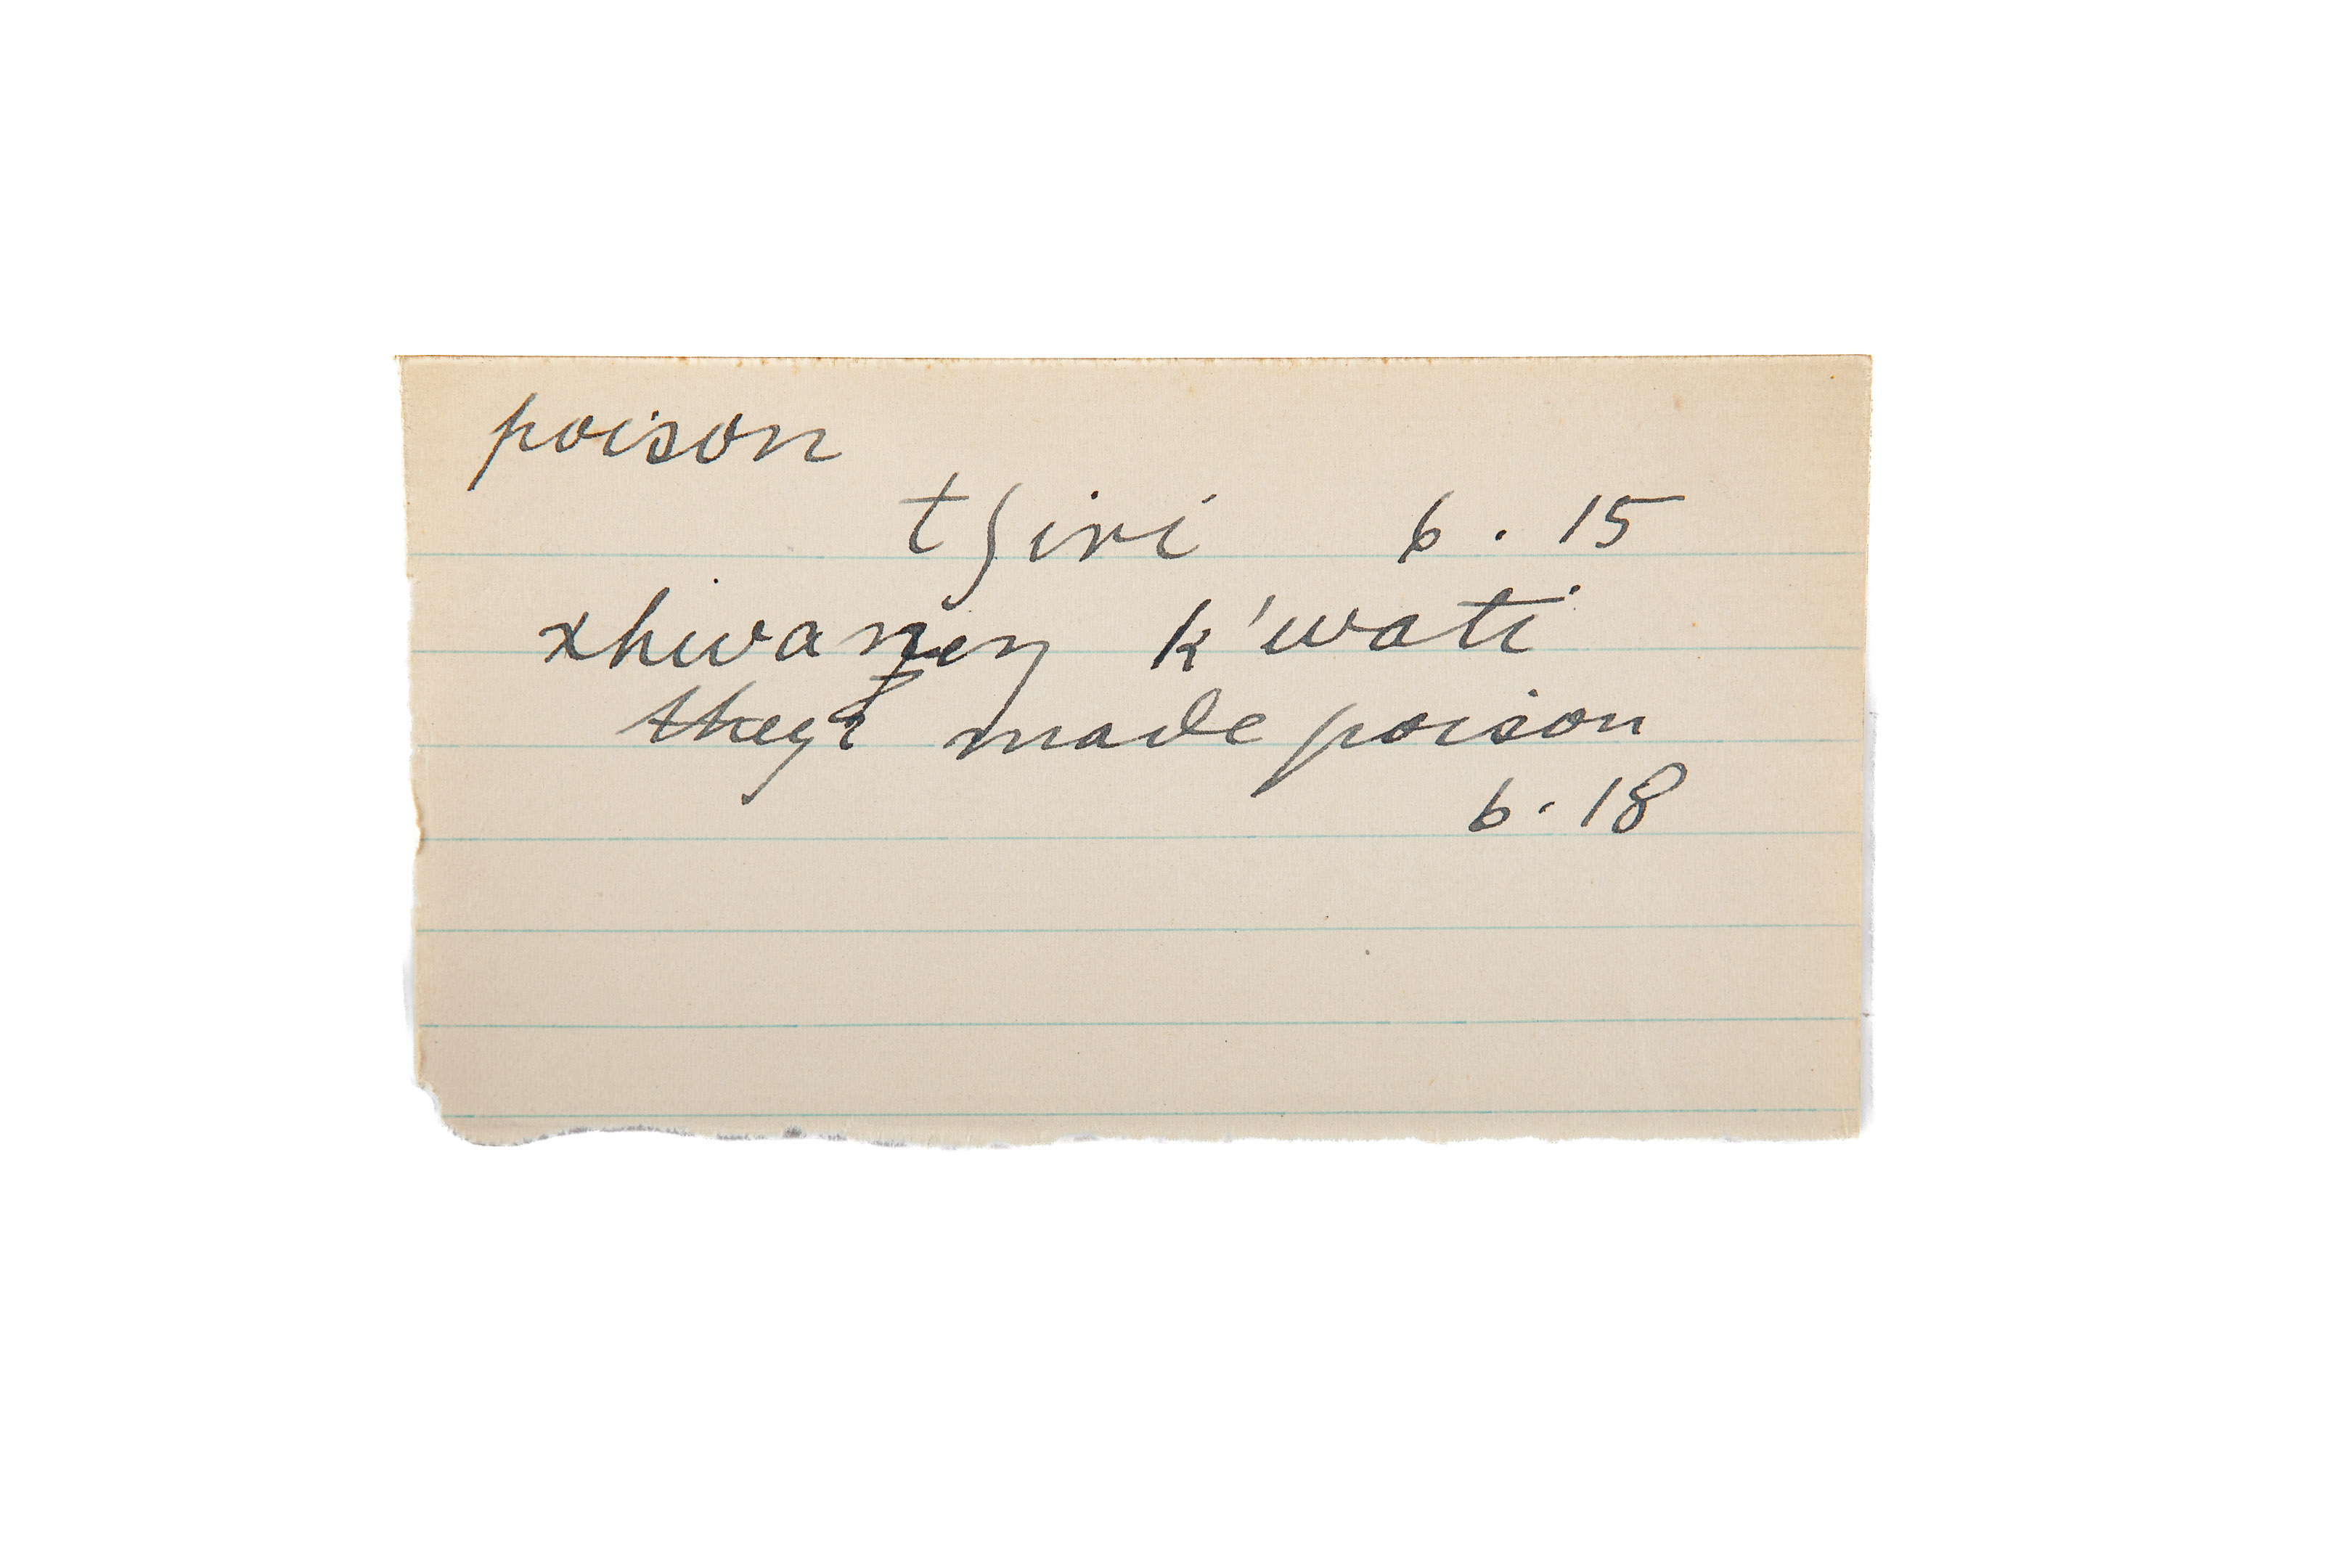 poison
tʃiri 6.15
k'wati
they made poison
6.18